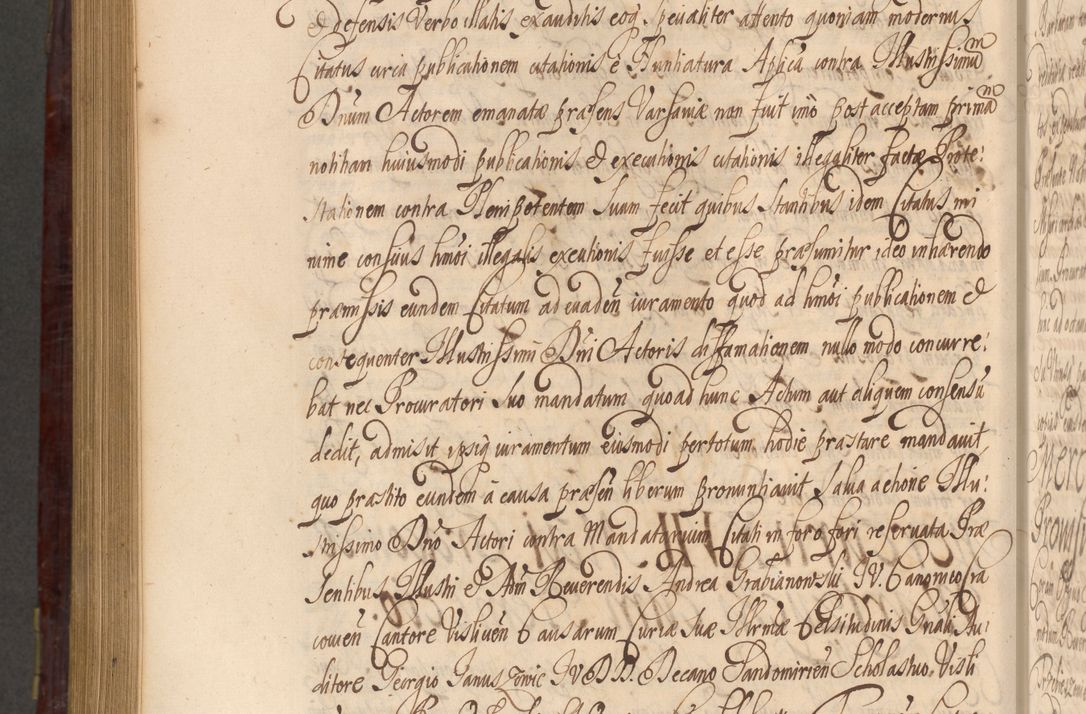 & defensis Verbo illatis exauditis eoq. specialiter attento quoniam modernus
Citatus circa publicationem citationis è Nuntiatura Aplica contra Illustrissimũ
Dnum Actorem emanatæ præsens Varsaviæ non fuit imò post acceptam primã
notitiam huiusmodi publicationis & executionis citationis illegaliter factæ Prote:
stationem contra Plenipotentem Suum fecit quibus stantibus idem Citatus mi
nime conscius hmõi illegalis executionis fuisse et esse præsumitur ideo inhærendo
præmissis eundem Citatum ad evadeñ iuramento quod ad hmõi publicationem &
consequenter Illustrissimi Dni Actoris diffamationem nullo modo concurre:
bat nec Procuratori suo mandatum quoad hunc Actum aut aliquem consensũ
dedit, admisit ipsiq iuramentum eiusmodi per totum hodie præstare mandavit
quo præstito eundem à causa præsen liberum pronuntiavit Salva actione Illu:
strissimo Dno Actori contra Mandatorium Citati in foro fori reservata Præ
sentibus Illustri & Adm Reverendis Andrea Grabianowski IV. Canonico Cra
covieñ Cantore Visliceñ Causarum Curiæ suæ Illrmæ Celsitudinis Gnãli Au:
ditore Georgio Janus zowic IVDD. Decano Sandomirieñ Scholastico Visli